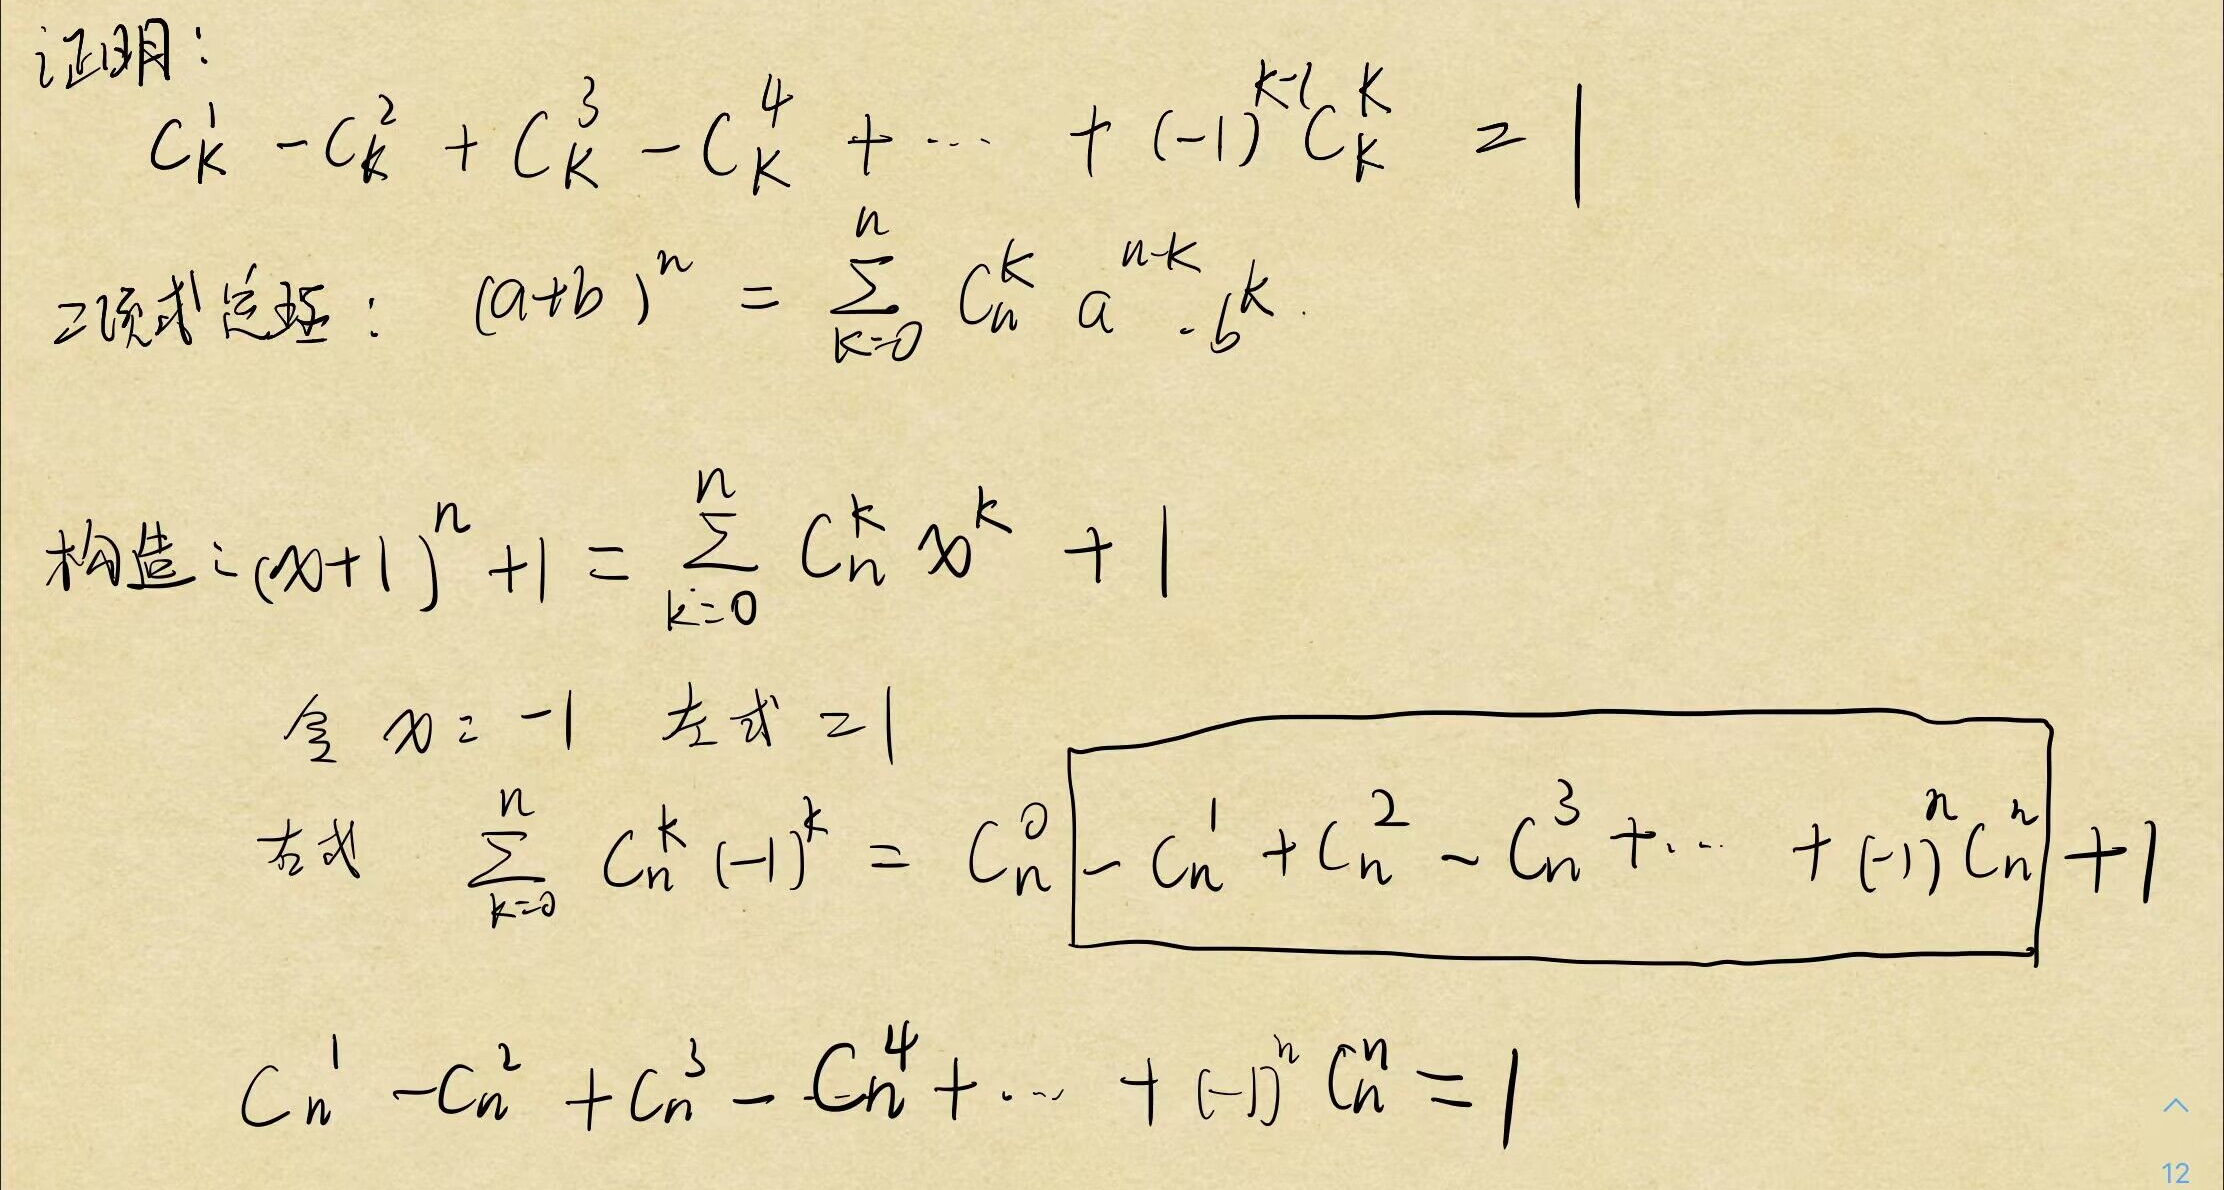 证明：
C_k^1 - C_k^2 + C_k^3 - C_k^4 + ⋯ + (-1)^{k-1} C_k^k = 1
二项式定理： (a+b)^n = ∑_{k=0}^{n} C_n^k a^{n-k} · b^k.
构造：(x+1)^n + 1 = ∑_{k=0}^{n} C_n^k x^k + 1
令 x = -1 左式 = 1
右式 ∑_{k=0}^{n} C_n^k (-1)^k = C_n^0 - C_n^1 + C_n^2 - C_n^3 + ⋯ + (-1)^n C_n^n + 1
C_n^1 - C_n^2 + C_n^3 - C_n^4 + ⋯ + (-1)^n C_n^n = 1
12